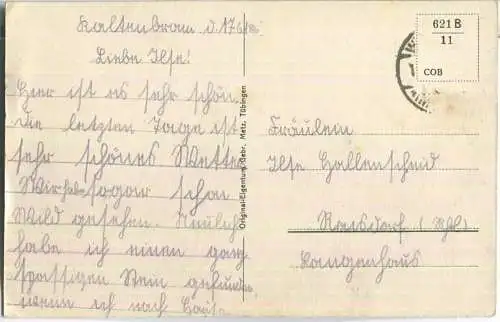 Kaltenbrom d. 17.6.
Liebe Ilse!
Hier ist es sehr schön.
Die letzten Tage ist
sehr schönes Wetter
Wir haben sogar schon
Wild gesehen. Neulich
habe ich einen ganz
spassigen Stein gefunden
wenn ich nach Hause
Original-Eigentum Gebr. Metz, Tübingen
621 B
11
COB
Fräulein
Ilse Hallenscheid
Raisdorf (Hhl)
Langenhaus